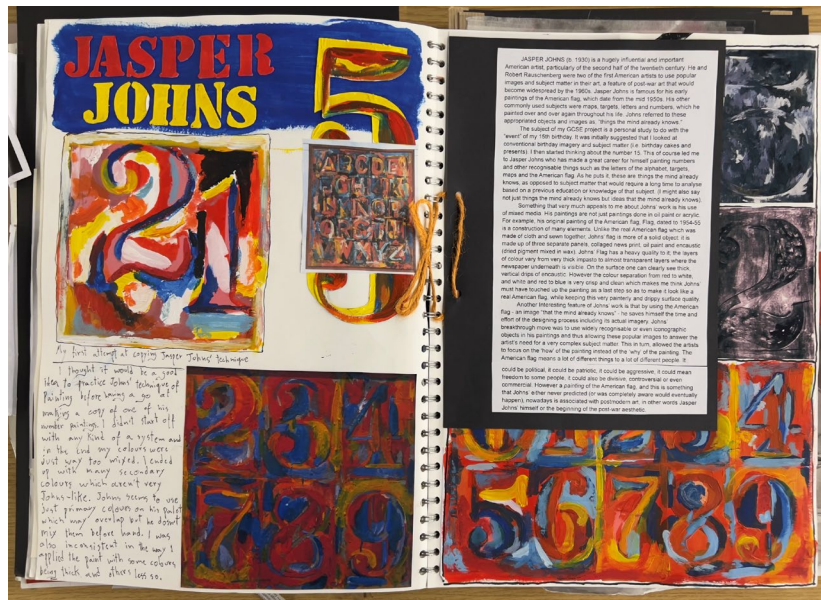 JASPER
JOHNS
My first attempt at copying Jasper Johns' technique
I thought it would be a good
idea to practice Johns' technique of
painting before having a go at
making a copy of one of his
number paintings. I didn't start off
with any kind of a system and
in the end my colours were
just way too mixed. I ended
up with many secondary
colours which aren't very
Johns-like. Johns seems to use
just primary colours on his palet
which may overlap but he doesn't
mix them before hand. I was
also inconsistent in the way I
applied the paint with some colours
being thick and others less so.
21
5
2 3 4
7 8 9
JASPER JOHNS (b. 1930) is a hugely influential and important
American artist, particularly of the second half of the twentieth century. He and
Robert Rauschenberg were two of the first American artists to use popular
images and subject matter in their art, a feature of post-war art that would
become widespread by the 1960s. Jasper Johns is famous for his early
paintings of the American flag, which date from the mid 1950s. His other
commonly used subjects were maps, targets, letters and numbers, which he
painted over and over again throughout his life. Johns referred to these
appropriated objects and images as, "things the mind already knows."
The subject of my GCSE project is a personal study to do with the
"event" of my 15th birthday. It was initially suggested that I looked at
conventional birthday imagery and subject matter (i.e. birthday cakes and
presents). I then started thinking about the number 15. This of course led me
to Jasper Johns who has made a great career for himself painting numbers
and other recognisable things such as the letters of the alphabet, targets,
maps and the American flag. As he puts it, these are things the mind already
knows, as opposed to subject matter that would require a long time to analyse
based on a previous education or knowledge of that subject. (I might also say
not just things the mind already knows but ideas that the mind already knows).
Something that very much appeals to me about Johns' work is his use
of mixed media. His paintings are not just paintings done in oil paint or acrylic.
For example, his original painting of the American flag, Flag, dated to 1954-55
is a construction of many elements. Unlike the real American flag which was
made of cloth and sewn together, Johns' flag is more of a solid object: it is
made up of three separate panels, collaged news print, oil paint and encaustic
(dried pigment mixed in wax). Johns' Flag has a heavy quality to it; the layers
of colour vary from very thick impasto to almost transparent layers where the
newspaper underneath is visible. On the surface one can clearly see thick
vertical drips of encaustic. However the colour separation from red to white,
and white and red to blue is very crisp and clean which makes me think Johns
must have touched up the painting as a last step so as to make it look like a
real American flag, while keeping this very painterly and drippy surface quality.
Another Interesting feature of Johns' work is that by using the American
flag - an image "that the mind already knows" - he saves himself the time and
effort of the designing process including its actual imagery. Johns'
breakthrough move was to use widely recognisable or even iconographic
objects in his paintings and thus allowing these popular images to answer the
artist's need for a very complex subject matter. This in turn, allowed the artists
to focus on the 'how' of the painting instead of the 'why' of the painting. The
American flag means a lot of different things to a lot of different people. It
could be political, it could be patriotic, it could be aggressive, it could mean
freedom to some people, it could also be divisive, controversial or even
commercial. However a painting of the American flag, and this is something
that Johns' either never predicted (or was completely aware would eventually
happen), nowadays is associated with postmodern art, in other words Jasper
Johns' himself or the beginning of the post-war aesthetic.
4
5 6 7 8 9